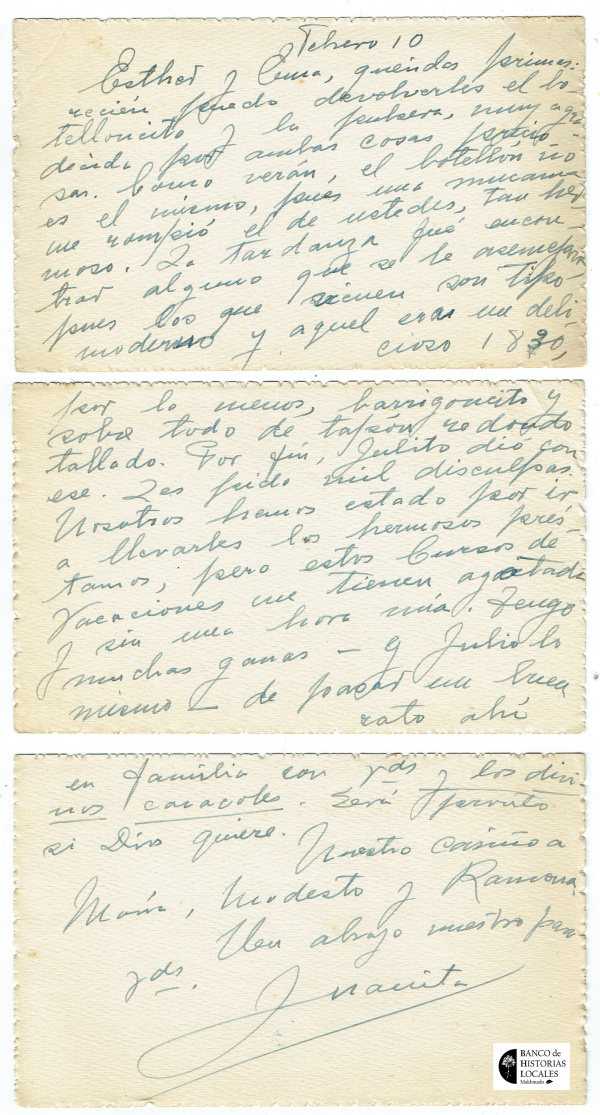 Febrero 10
Esther y Ema, queridas primas:
recién puedo devolverles el bo-
telloncito y la pulsera, muy agra
decida por ambas cosas precio-
sas. Como verán, el botellón no
es el mismo, pues una mucama
me rompió el de ustedes, tan her
moso. La tardanza fué encon
trar alguno que se le asemejara
pues los que vienen son tipo
moderno y aquel era un deli
cioso 1830,
por lo menos, barrigoncito y
sobre todo de tapón redondo
tallado. Por fin, Julito dió con
ese. Les pido mil disculpas.
Nosotros hemos estado por ir
a llevarles los hermosos prés-
tamos, pero estos Cursos de
Vacaciones me tienen agotada
y sin una hora mía. Tengo
muchas ganas – y Julio lo
mismo – de pasar un buen
rato ahí
en familia con Vds y los divi
nos caracoles. Será pronto
si Dios quiere.
Nuestro cariño a
María, Modesto y Ramona
Un abrazo nuestro para
Vds.
Juanita
BANCO de
HISTORIAS
LOCALES
Maldonado